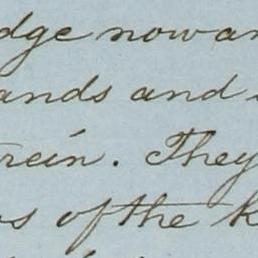 dge now an
ands and
rein. They
s of the K